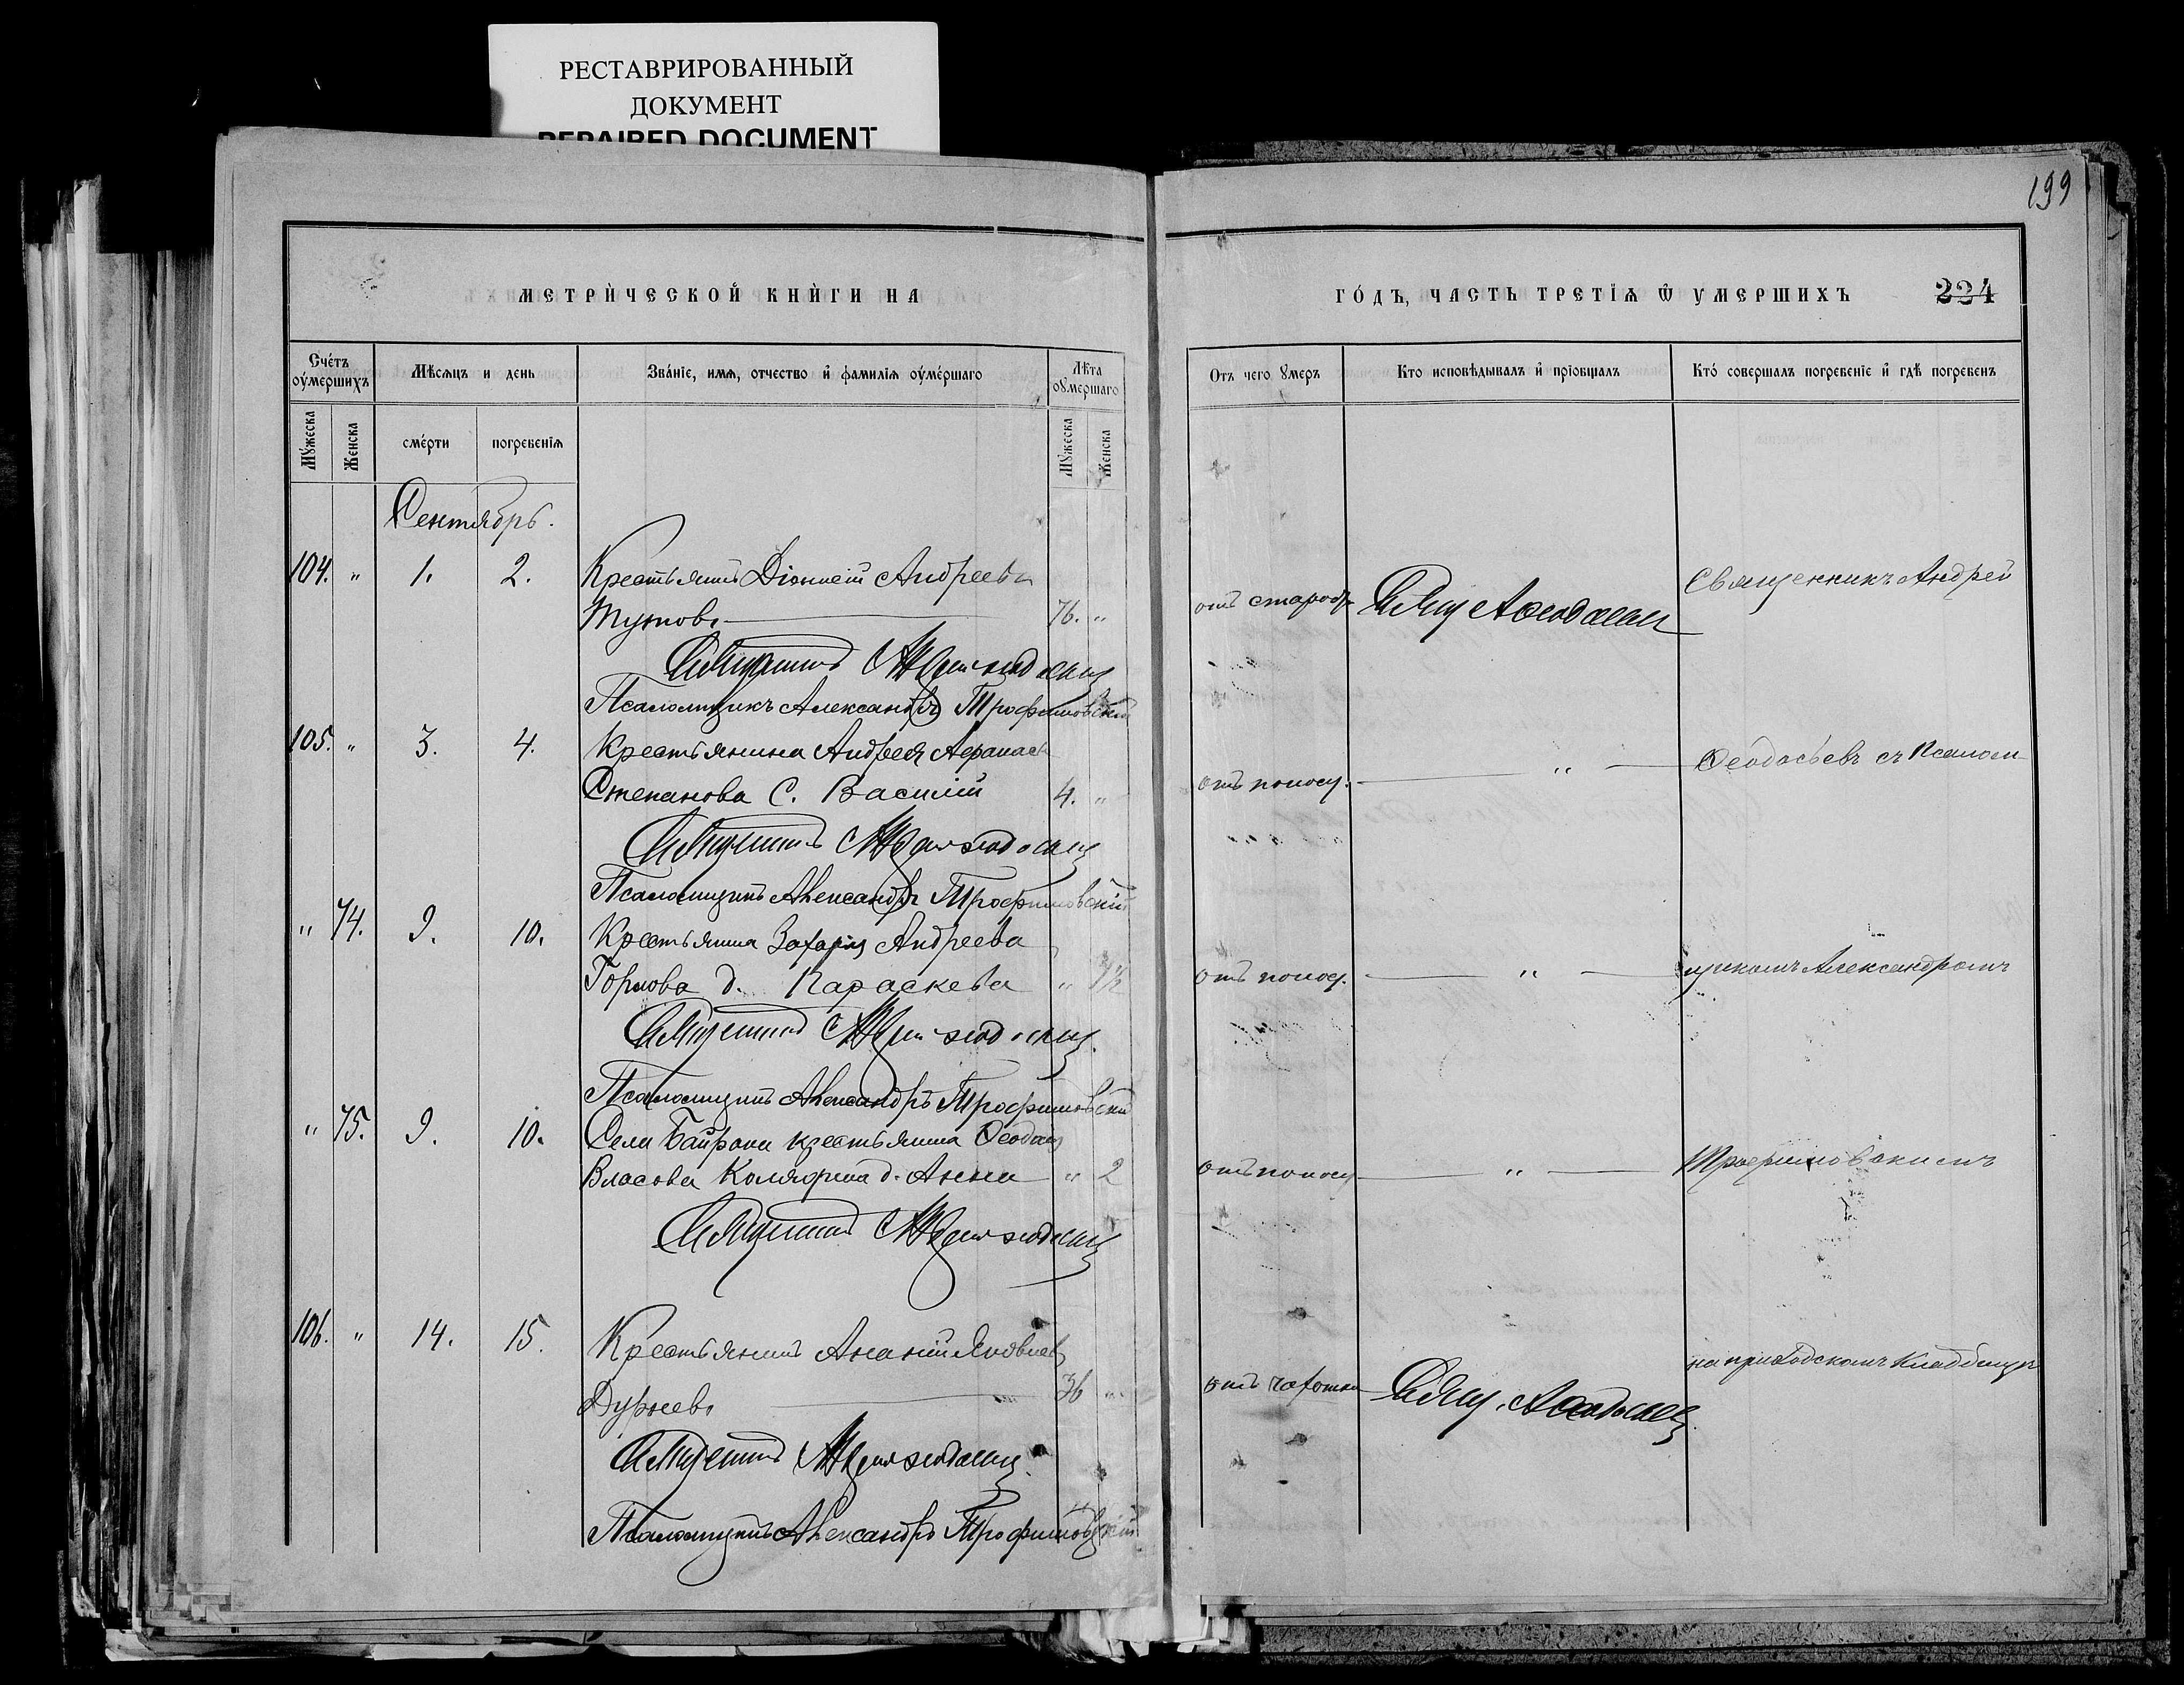 РЕСТАВРИРОВАННЫЙ
ДОКУМЕНТ
REPAIRED DOCUMENT
199
МЕТРИЧЕСКОЙ КНИГИ НА
ГОДЪ, ЧАСТЬ ТРЕТІЯ Ѿ УМЕРШИХЪ
224
Счетъ оумершихъ
Мѣсяцъ и день
Званіе, имя, отчество и фамилія оумершаго
Лѣта оумершаго
Отъ чего умеръ
Кто исповѣдывалъ и пріобщалъ
Кто совершалъ погребеніе и гдѣ погребенъ
Мужеска
Женска
смерти
погребенія
Мужеска
Женска
Сентябрь.
104. " 1. 2. Крестьянинъ Діонисій Андреевъ
76. " отъ старости Священникъ Андрей
Псаломщикъ Александръ Трофимовскій
105. " 3. 4. Крестьянина Андрея Афанась
Степанова с. Василій 4. " отъ поносу. " Ѳеодосьевъ съ Псалом-
Псаломщикъ Александръ Трофимовскій
" 74. 9. 10. Крестьянина Захарія Андреева
Горлова д. Параскева " 1/2 отъ поносу. " щикомъ Александромъ
Псаломщикъ Александръ Трофимовскій
" 75. 9. 10. Села Байрака крестьянина Ѳеодос
Власова д. Анна " 2 отъ поносу " Трофимовскимъ
106. " 14. 15. Крестьянинъ Ананій Яковлев
36 " отъ чахотки на приходскомъ кладбищѣ
Псаломщикъ Александръ Трофимовскій